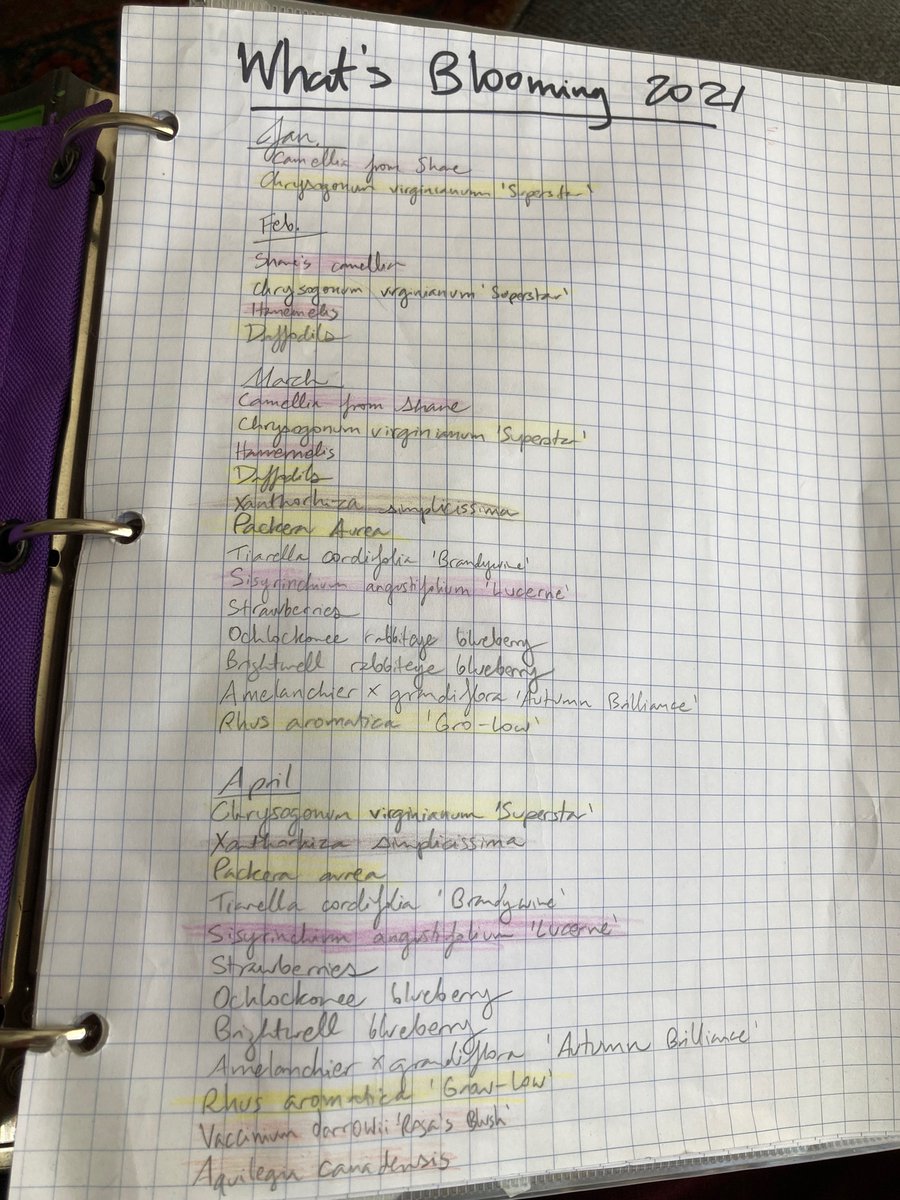 What's Blooming 2021
Jan.
Camellia from Shane
Chrysogonum virginianum 'Superstar'
Feb.
Shane's camellia
Chrysogonum virginianum 'Superstar'
Hamemelis
Daffodils
March
Camellia from Shane
Chrysogonum virginianum 'Superstar'
Hamemelis
Daffodils
Xanthorhiza simplicissima
Packera Aurea
Tiarella cordifolia 'Brandywine'
Sisyrinchium angustifolium 'Lucerne'
Strawberries
Ochlockonee rabbiteye blueberry
Brightwell rabbiteye blueberry
Amelanchier x grandiflora 'Autumn Brilliance'
Rhus aromatica 'Gro-Low'
April
Chrysogonum virginianum 'Superstar'
Xanthorhiza simplicissima
Packera aurea
Tiarella cordifolia 'Brandywine'
Sisyrinchium angustifolium 'Lucerne'
Strawberries
Ochlockonee blueberry
Brightwell blueberry
Amelanchier x grandiflora 'Autumn Brilliance'
Rhus aromatica 'Grow-Low'
Vaccinium darrowii 'Rosa's Blush'
Aquilegia canadensis